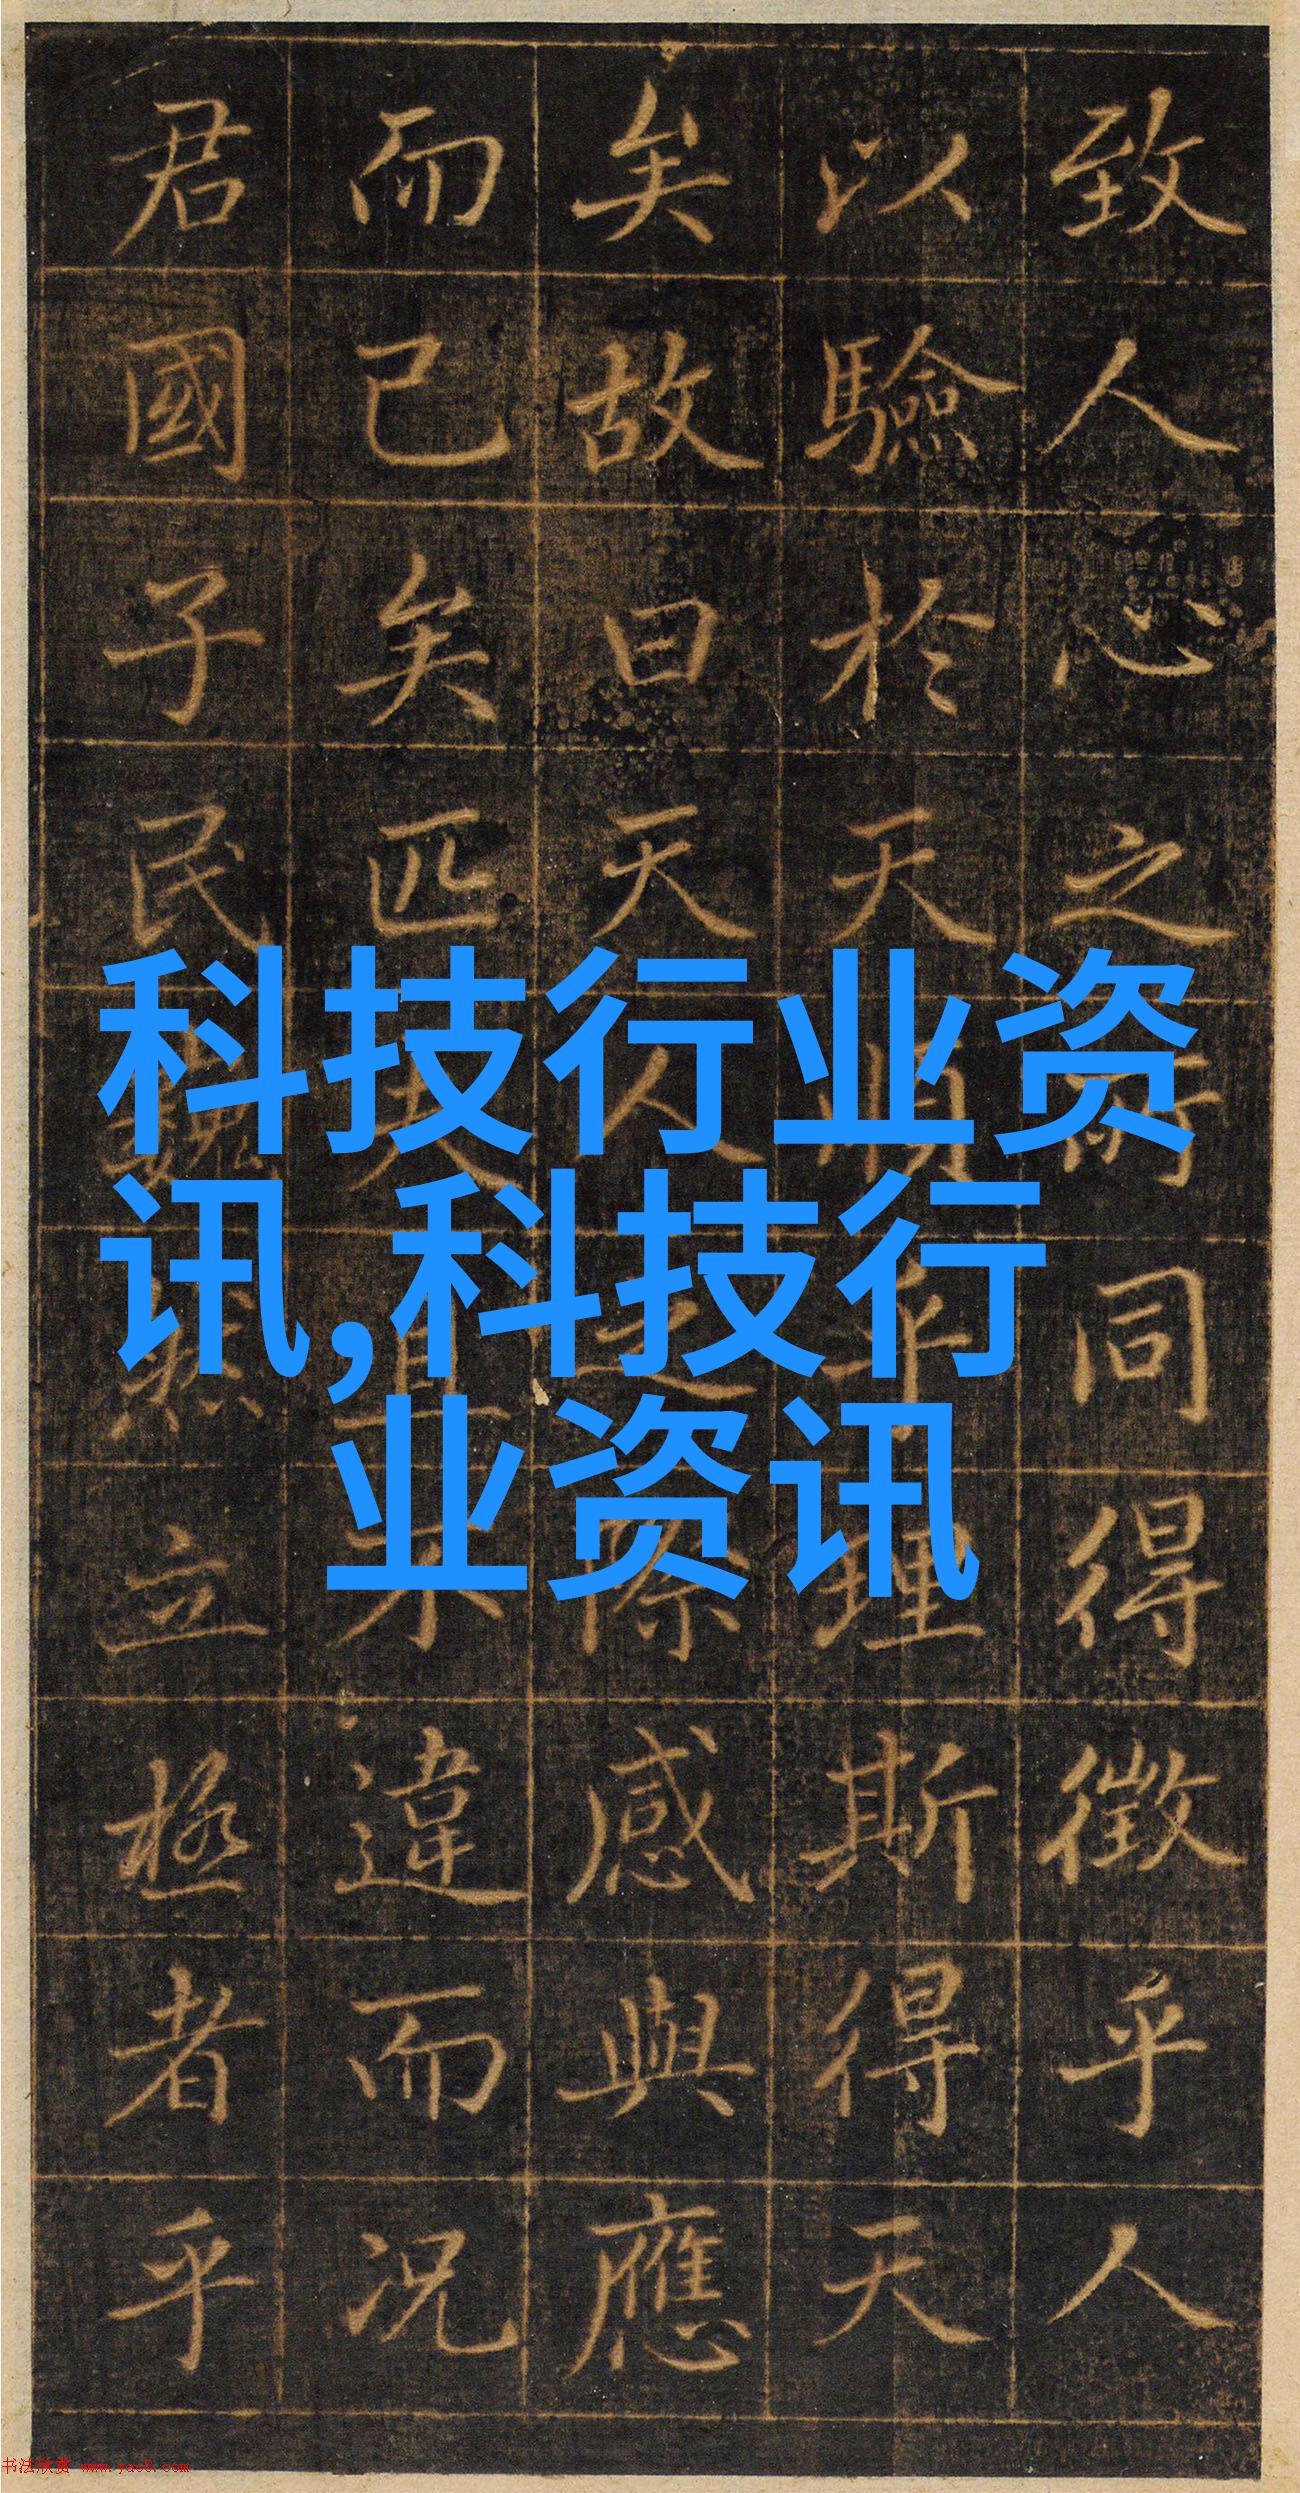 致人心之所同得徵乎人
以驗於天順乎理斯得天
矣故曰天人之際感與應
而已矣匹夫且不違而況
君國子民巍然立極者乎
科技行业资
讯,科技行
业资讯
书法欣赏 www.yac8.com